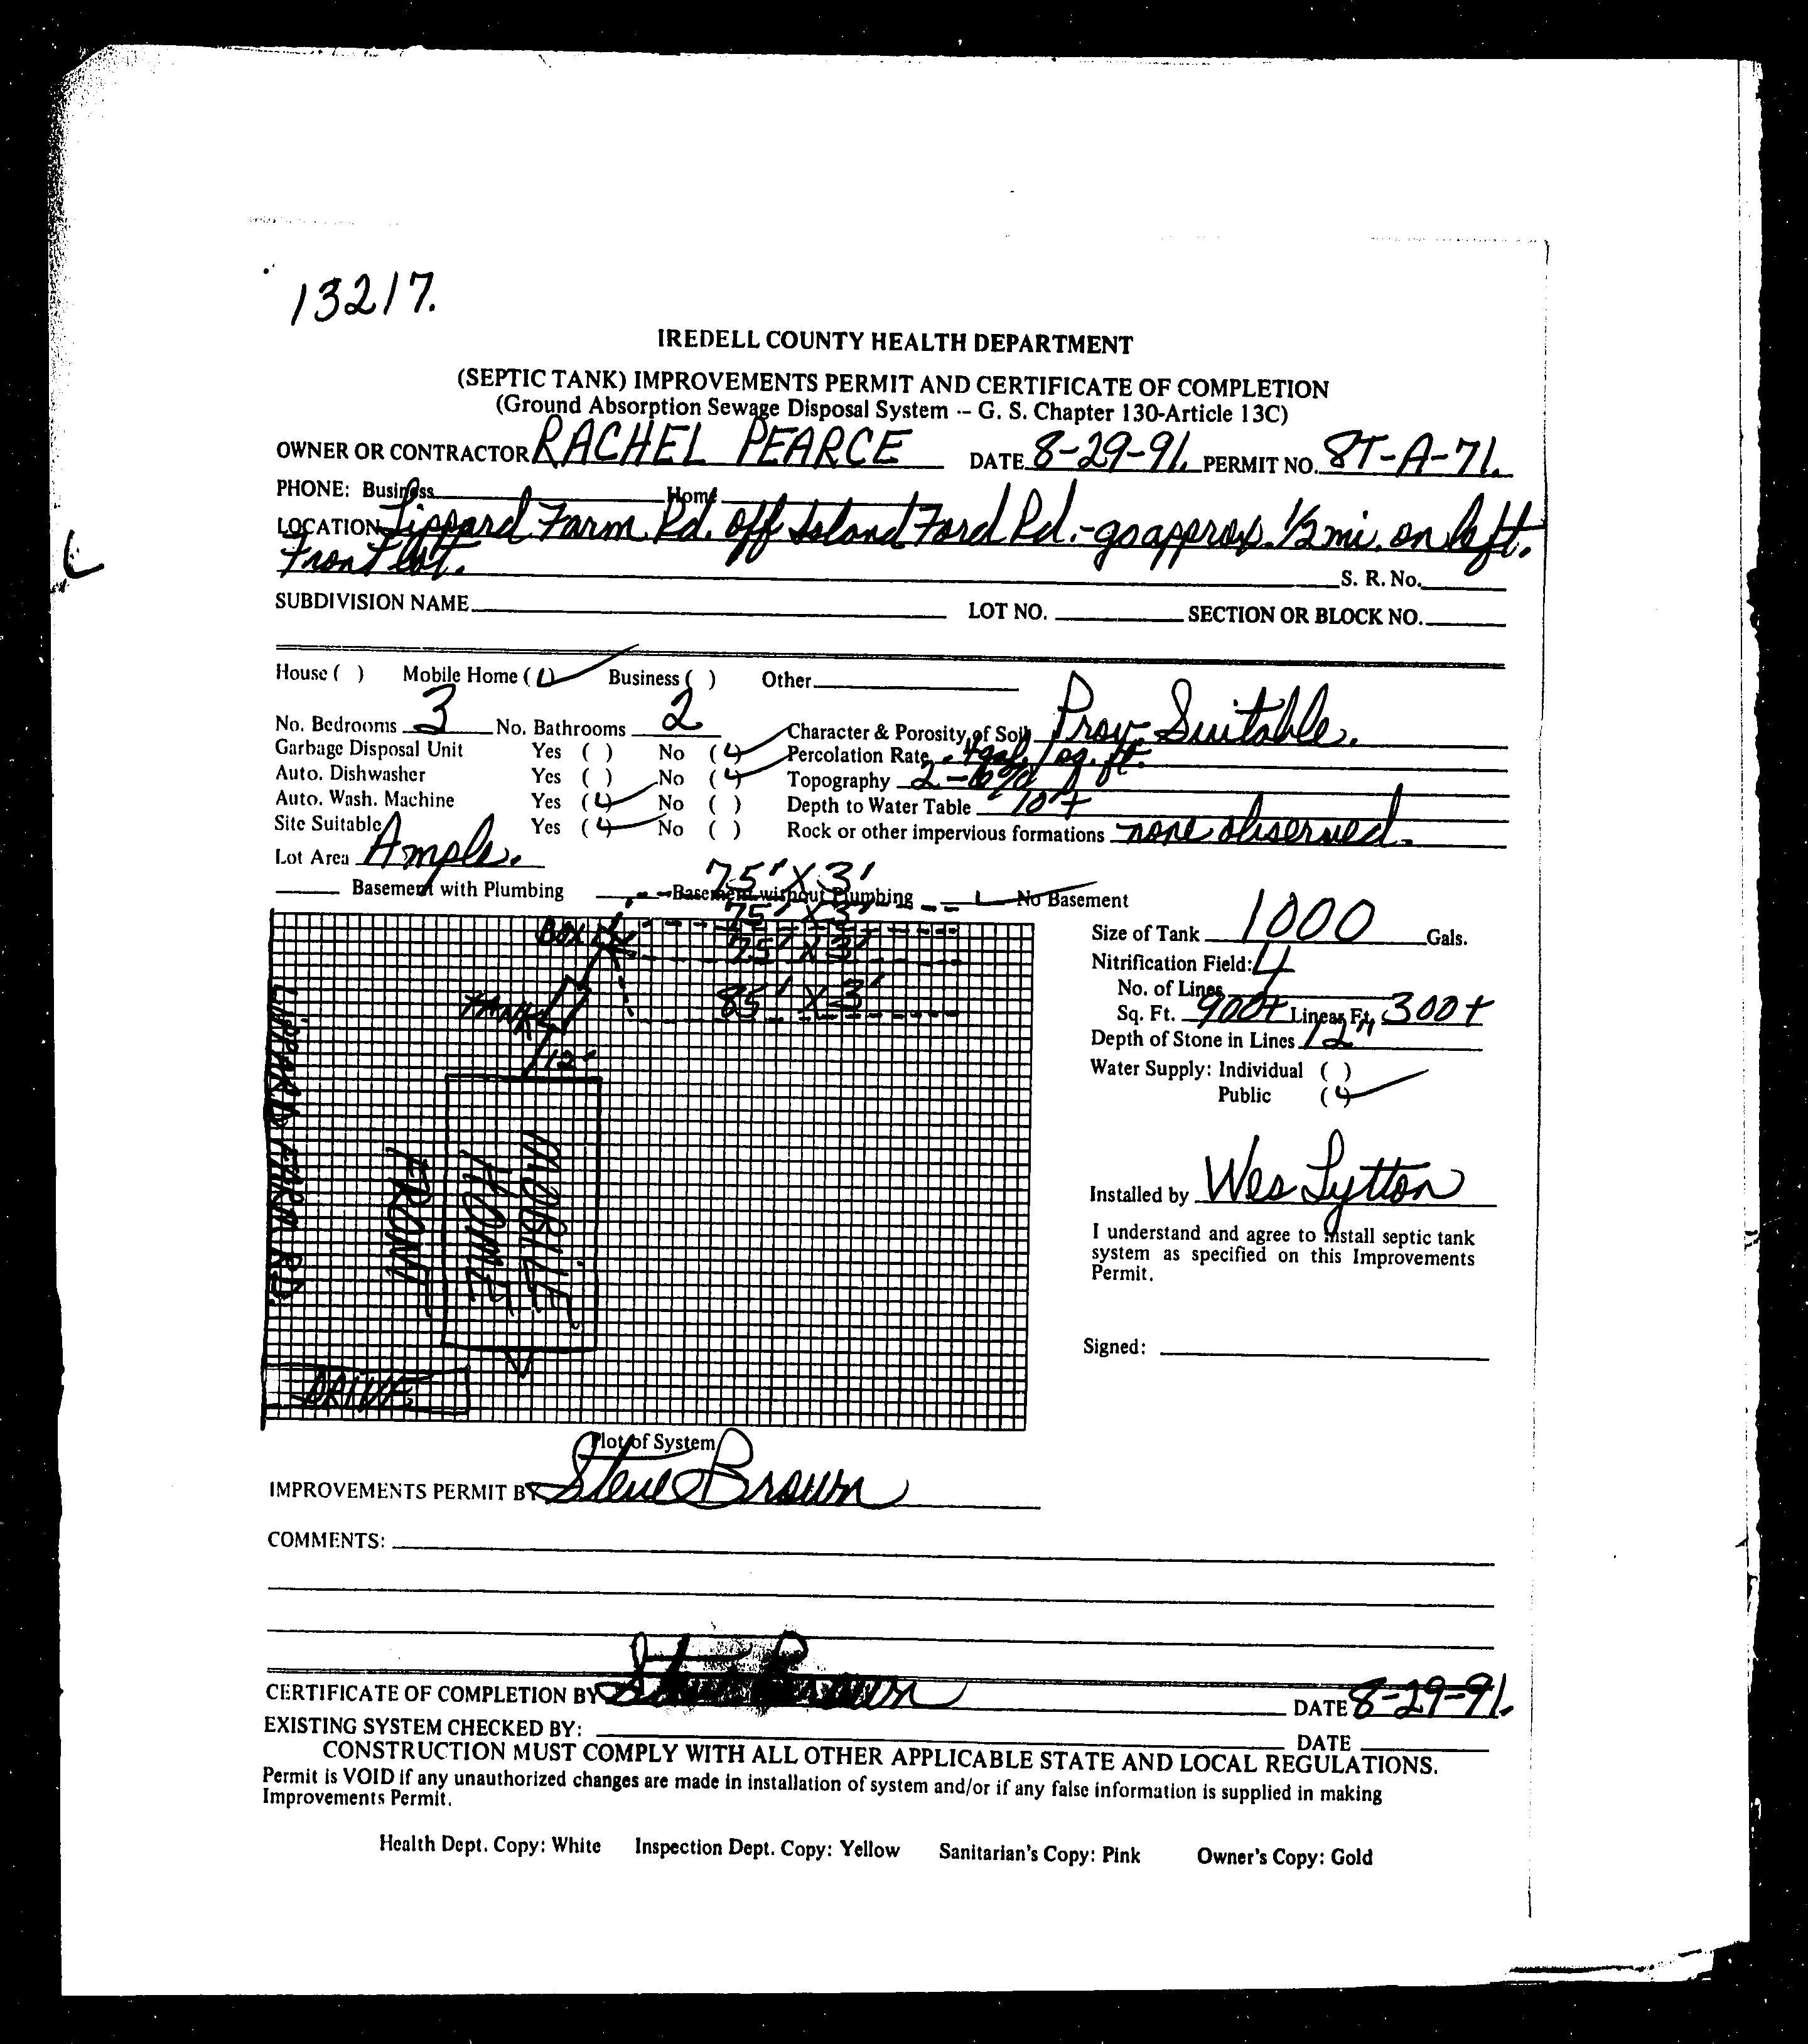 13217.
IREDELL COUNTY HEALTH DEPARTMENT
(SEPTIC TANK) IMPROVEMENTS PERMIT AND CERTIFICATE OF COMPLETION
(Ground Absorption Sewage Disposal System -- G. S. Chapter 130-Article 13C)
OWNER OR CONTRACTOR RACHEL PEARCE DATE 8-29-91. PERMIT NO. 8T-A-71.
PHONE: Business Home
LOCATION Lippard Farm Rd. off Island Ford Rd.-go approx. 1/2 mi. on left.
Front lot. S. R. No.
SUBDIVISION NAME LOT NO. SECTION OR BLOCK NO.
House ( ) Mobile Home (✓) Business ( ) Other
No. Bedrooms 3 No. Bathrooms 2 Character & Porosity of Soil Prov. Suitable.
Garbage Disposal Unit Yes ( ) No (✓) Percolation Rate .4gal/sq. ft.
Auto. Dishwasher Yes ( ) No (✓) Topography 2-6%
Auto. Wash. Machine Yes (✓) No ( ) Depth to Water Table 10'+
Site Suitable Yes (✓) No ( ) Rock or other impervious formations none observed.
Lot Area Ample.
75' X 3'
Basement with Plumbing Basement without Plumbing ✓ No Basement
75' X 3'
BOX 75' X 3'
85' X 3'
TANK
12'
LIPPARD FARM RD.
FRONT
MOBILE
HOME
DRIVE
Size of Tank 1000 Gals.
Nitrification Field:
No. of Lines 4
Sq. Ft. 900+ Linear Ft. 300+
Depth of Stone in Lines 12"
Water Supply: Individual ( )
Public (✓)
Installed by Wes Lytton
I understand and agree to install septic tank
system as specified on this Improvements
Permit.
Signed:
Plot of System
IMPROVEMENTS PERMIT BY Steve Brown
COMMENTS:
CERTIFICATE OF COMPLETION BY Steve Brown DATE 8-29-91.
EXISTING SYSTEM CHECKED BY: DATE
CONSTRUCTION MUST COMPLY WITH ALL OTHER APPLICABLE STATE AND LOCAL REGULATIONS.
Permit is VOID if any unauthorized changes are made in installation of system and/or if any false information is supplied in making
Improvements Permit.
Health Dept. Copy: White Inspection Dept. Copy: Yellow Sanitarian's Copy: Pink Owner's Copy: Gold